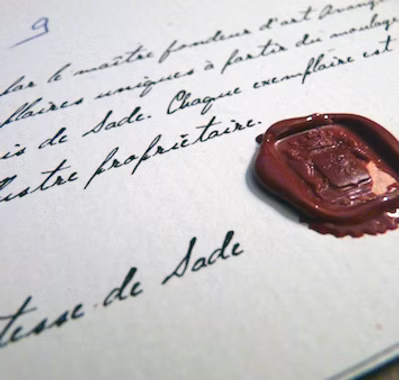 9
par le maître fondeur d'art
plaires uniques à partir du moulage
is de Sade. Chaque exemplaire est
lustre propriétaire.
tesse de Sade